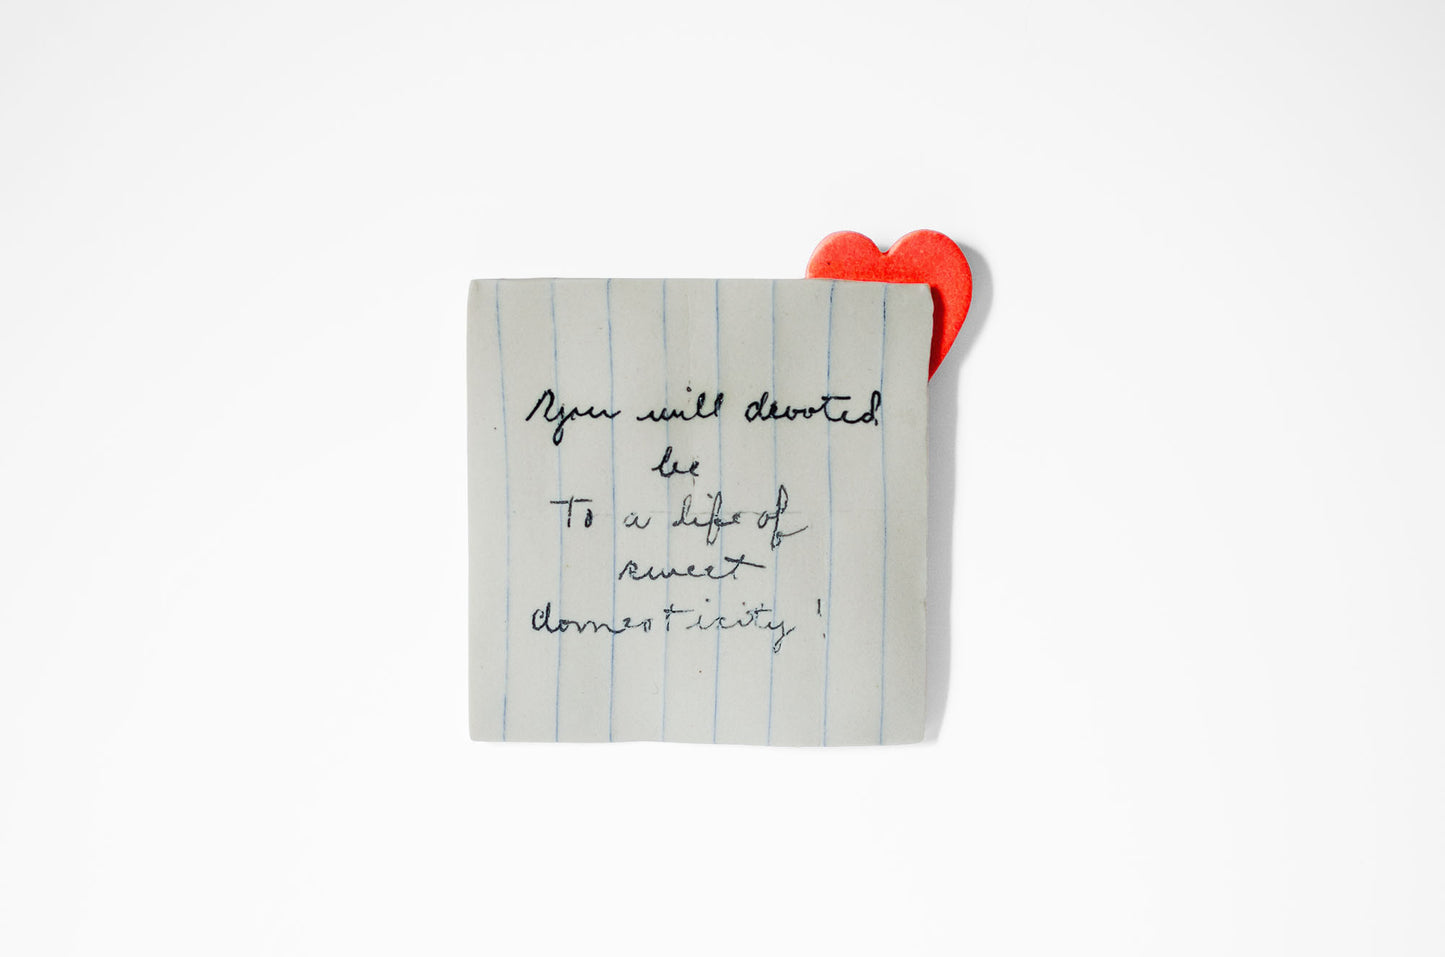 You will devoted
be
To a life of
sweet
domesticity!